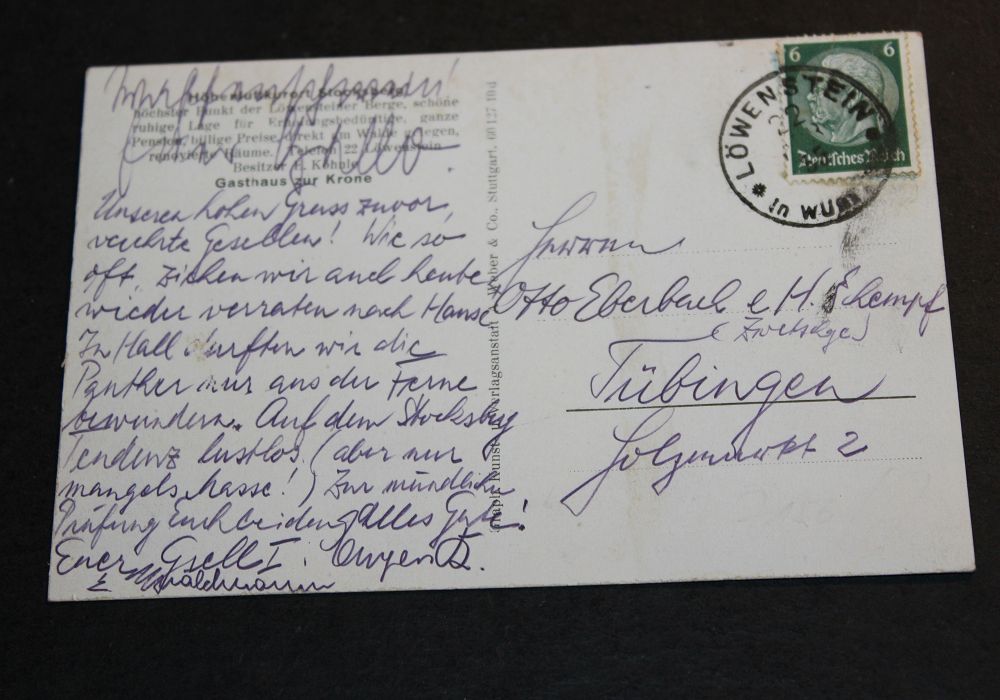 Höhenluftkurort Stocksberg
höchster Punkt der Löwensteiner Berge, schöne
ruhige Lage für Erholungsbedürftige, ganze
Pension, billige Preise, direkt am Walde gelegen,
renovierte Räume. Telefon 22 Löwenstein
Besitzer F. Köhnle
Gasthaus zur Krone
Unseren hohen Gruss zuvor,
verehrte Gesellen! Wie so
oft, ziehen wir auch heute
wieder verraten nach Hause
In Hall durften wir die
Panther nur aus der Ferne
bewundern. Auf dem Stocksberg
Tendenz lustlos. (aber nur
mangels Masse!) Zur mündlichen
Prüfung Euch beiden alles Gute!
Euer Gsell I.
Graph. Kunst- u. Verlagsanstalt Weber & Co., Stuttgart. 60 127 10d
6 6
Deutsches Reich
LÖWENSTEIN
in WÜRT
Herren
Otto Eberbach & H. Schempf
Tübingen
Holzmarkt 2